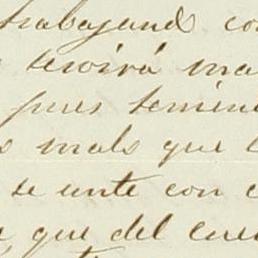 trabajando co
servirá ma
pues termin
s mals que l
se unte con c
que del cue